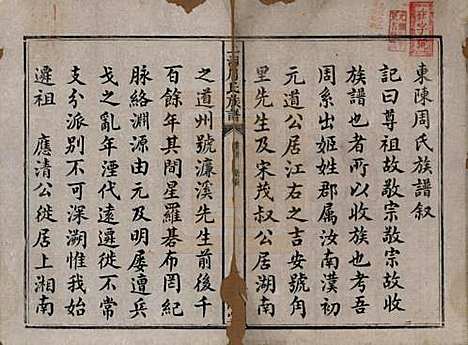 東陳周氏族譜叙
記曰尊祖故敬宗敬宗故收
族譜也者所以收族也吾
周系出姬姓郡屬汝南漢初
元道公居江右之吉安號角
里先生及宋茂叔公居湖南
周氏族譜
之道州號濂溪先生前後千
百餘年其間星羅碁布罔紀
脉絡淵源由元及明屢遭兵
戈之亂年湮代遠遷徙不常
支分派別不可深溯惟我始
遷祖 應清公徙居上湘南